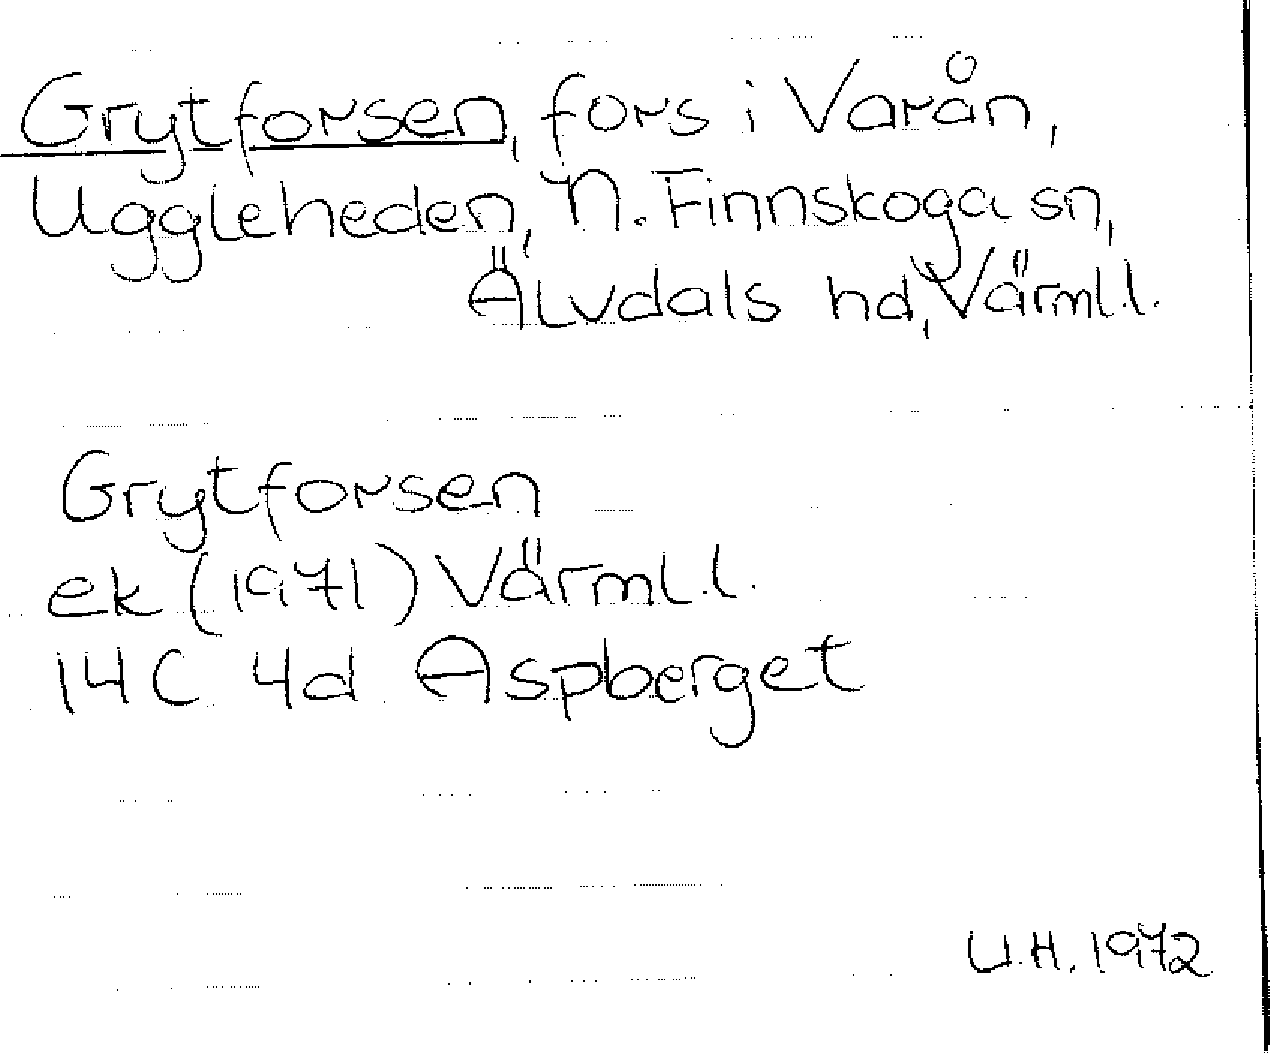 Grytforsen, fors i Varån,
Uggleheden, N. Finnskoga sn,
Älvdals hd, Värml.l.
Grytforsen
ek (1971) Värml.l.
14C 4d Aspberget
U.H. 1972